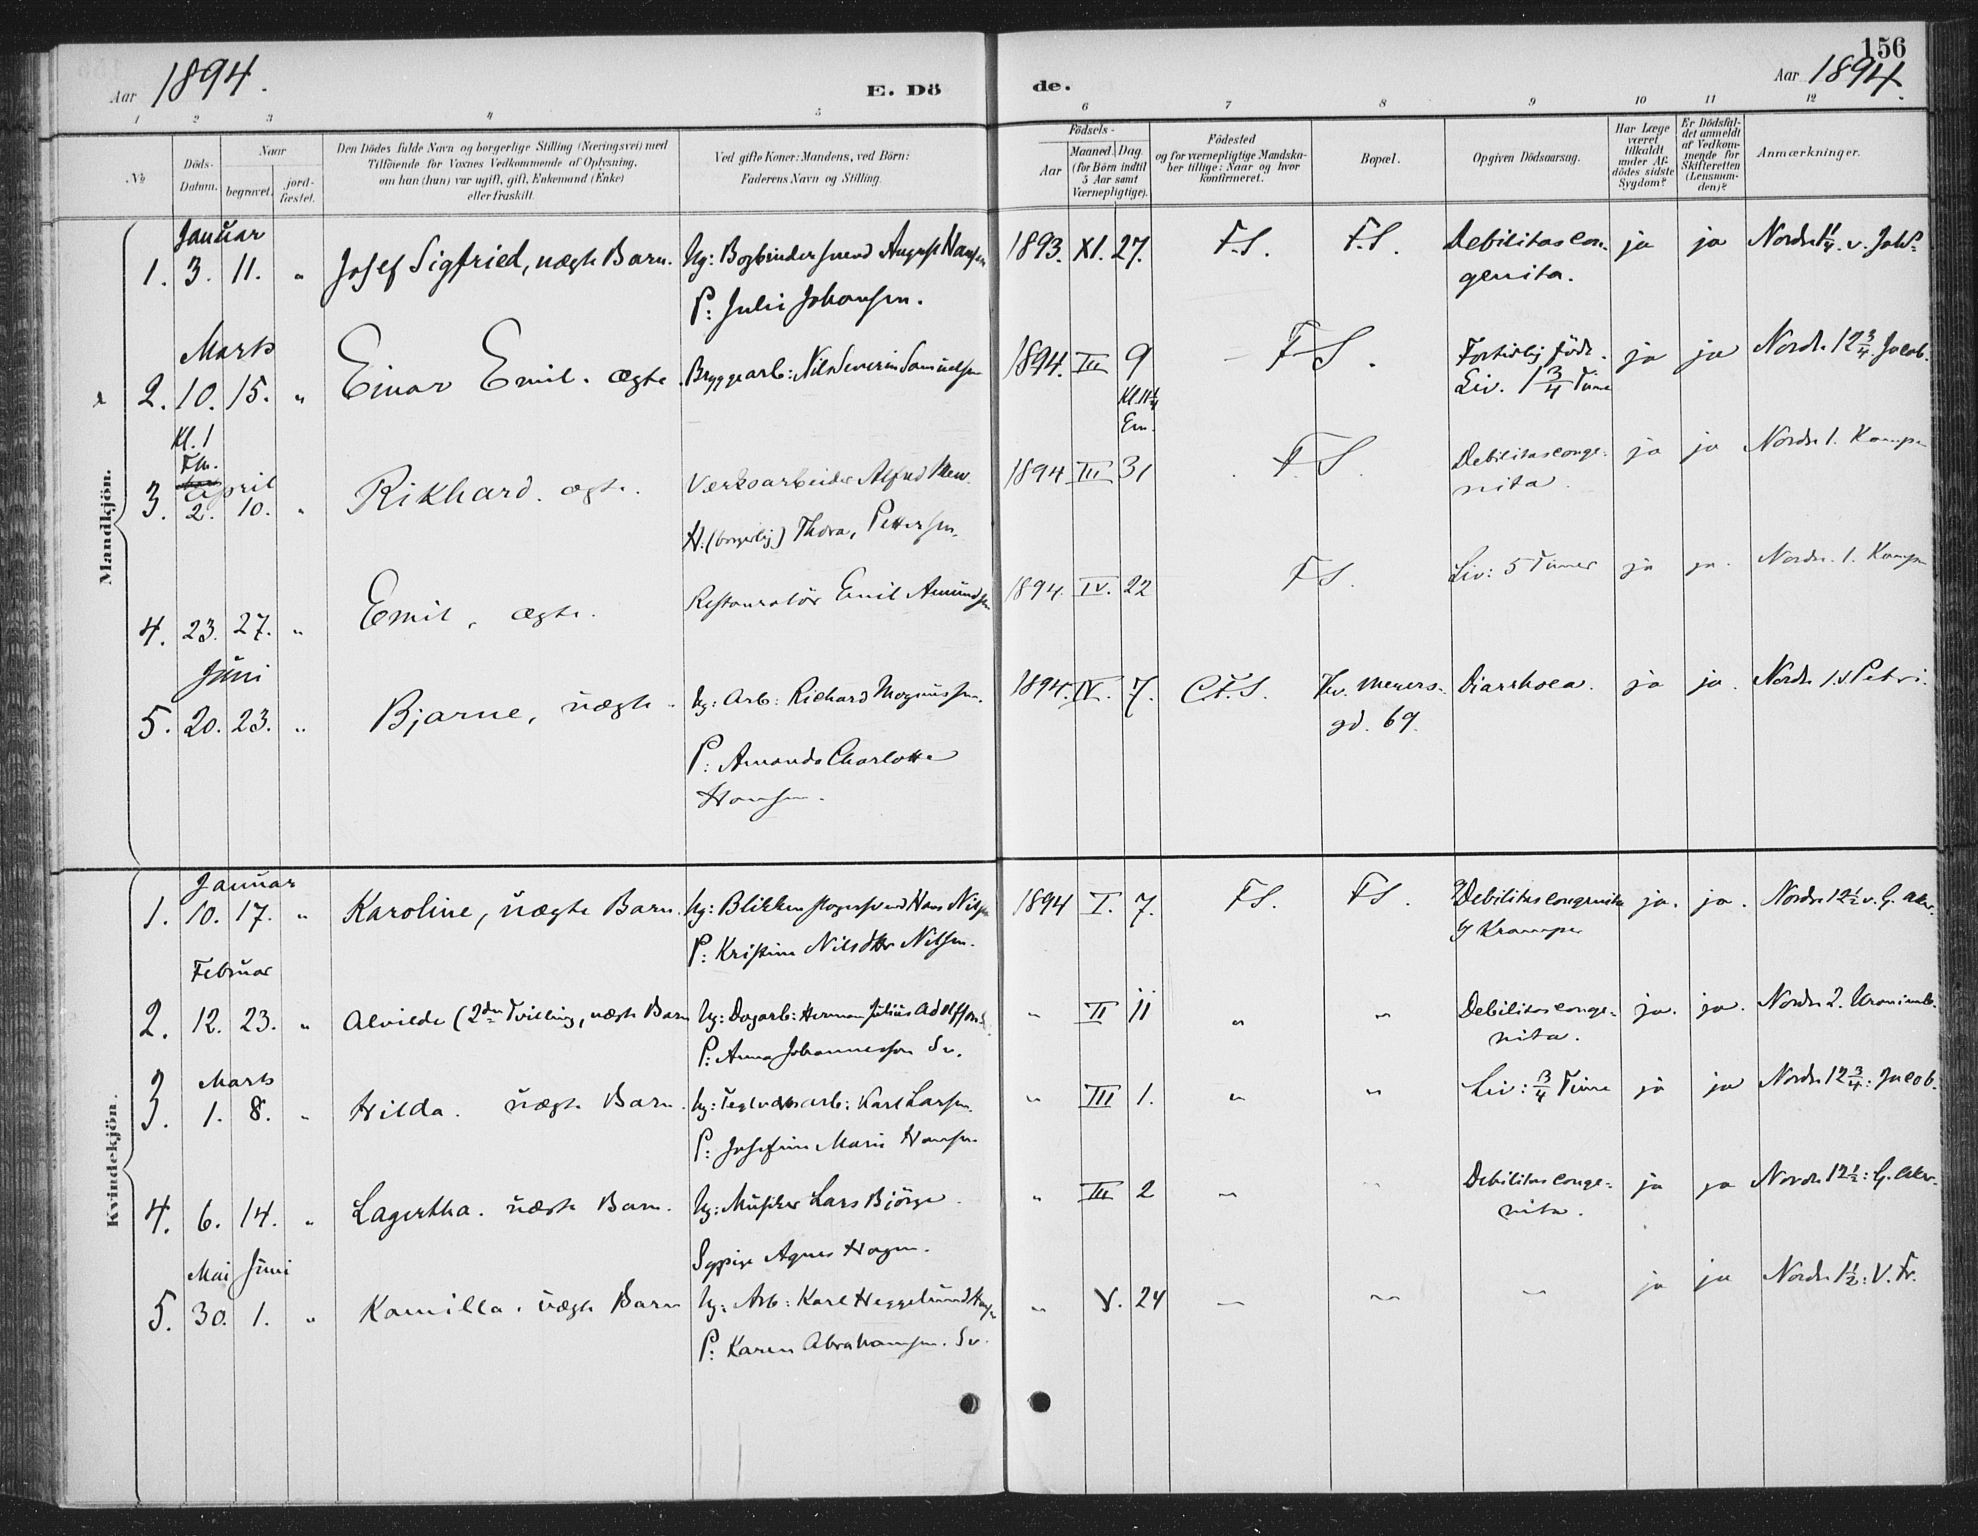 156
Aar 1894.
E. Döde.
Aar 1894.
1 2 3 4 5 6 7 8 9 10 11 12
No
Döds-Datum.
Naar
begravet.
jord-fæstet.
Den Dödes fulde Navn og borgerlige Stilling (Næringsvei) med
Tilföiende for Voxnes Vedkommende af Oplysning,
om han (hun) var ugift, gift, Enkemand (Enke)
eller fraskilt.
Ved gifte Koner: Mandens, ved Börn:
Faderens Navn og Stilling.
Födsels-
Aar
Maaned. Dag
(for Börn indtil
5 Aar samt
Værnepligtige).
Födested
og for værnepligtige Mandska-
ber tillige: Naar og hvor
konfirmeret.
Bopæl.
Opgiven Dödsaarsag.
Har Læge
været
tilkaldt
under Af-
dödes sidste
Sygdom?
Er Dödsfal-
det anmeldt
af Vedkom-
mende for
Skifteretten
(Lensman-
den)?
Anmærkninger.
Mandkjön.
Januar
1. 3. 11. " Josef Sigfried, uægte Barn. Ug: Bogbindersvend August Hansen 1893. XI. 27. F.S. F.S. Debilitas con-
genita. ja ja Nordre 1¼ v. Joh
P: Julie Johansen.
Marts
2. 10. 15. " Einar Emil. ægte Bryggearb: Nils Severin Samuelsen 1894. III 9 F S. Fortidlig födt.
Liv. 1 3/4 Time ja ja Nordre 12 3/4. Jacob.
Kl. 1
Fm.
Kl. 11¼
Em.
April
3. 2. 10. " Rikhard. ægte. Værksarbeider Alfred
H. (borgerlig) Thora, Pettersen. 1894 III 31 F S. Debilitas conge-
nita. ja ja Nordre 1. Kampen
4. 23. 27. " Emil, ægte. Restauratör Emil Amundsen 1894. IV. 22 F S. Liv: 5 Timer ja ja. Nordre. 1. Kampen
Juni
5. 20. 23. " Bjarne, uægte. Ug: Arb: Richard Magnussen. 1894. IV. 7. C F. S. Thv. Meyers-
gd. 69. Diarrhoea. ja ja. Nordre 1. v Petri.
P: Amanda Charlotte
Hansen.
Kvindekjön.
Januar
1. 10. 17. " Karoline, uægte Barn. Ug: Blikkenslagersvend Hans Nilsen 1894 I. 7. F S. F S. Debilitas congenita
Kramper ja. ja. Nordre 12½ v. G. Aker.
P: Kristine Nilsdtr Nilsen.
Februar
2. 12. 23. " Alvilde (2den Tvilling, uægte Barn Ug: Dagarb: Herman Julius Adolfson " II 11 " " Debilitas conge-
nita. ja. ja. Nordre 2.
P: Anna Johannesson Sv.
Marts
3. 1. 8. " Hilda. uægte Barn. Ug: Teglværksarb: Karl Larsen. " III 1. " " Liv: 3/4 Time ja ja Nordre 12 3/4: Jacob.
P: Josefine Marie Hansen
4. 6. 14. " Lagertha. uægte Barn. Ug: Musiker Lars Björge. " III 2 " " Debilitas conge-
nita. ja ja Nordre 12½: G. Aker.
Sypige Agnes Hagen.
Mai Juni
5. 30. 1. " Kamilla. uægte Barn Ug: Arb: Karl Heggelund " V. 24 " " " ja ja Nordre 1½: V. Fr.
P: Karen Abrahamsen. Sv.